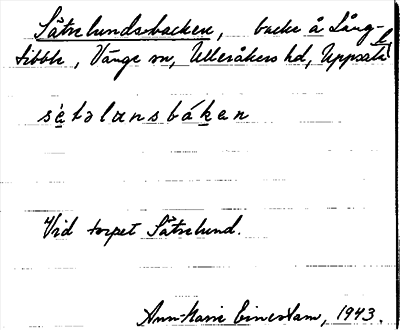 Sätralundsbacken, backe å Lång-
tibble, Vänge sn, Ulleråkers hd, Uppsala l.
sètalunsbákan
Vid torpet Sätralund.
Ann-Marie Einerstam, 1943.